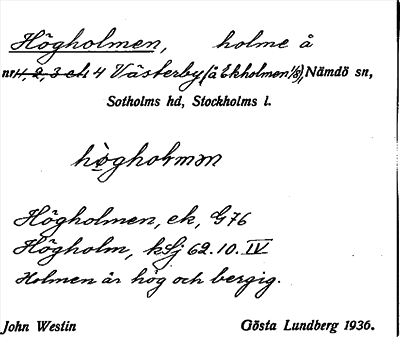 Högholmen, holme å
nr 1, 2, 3 och 4 Västerby (å Ekholmen 1/8), Nämdö sn,
Sotholms hd, Stockholms l.
hògholmən
Högholmen, ek, G 76
Högholm, kSj 62.10.IV
Holmen är hög och bergig.
John Westin Gösta Lundberg 1936.